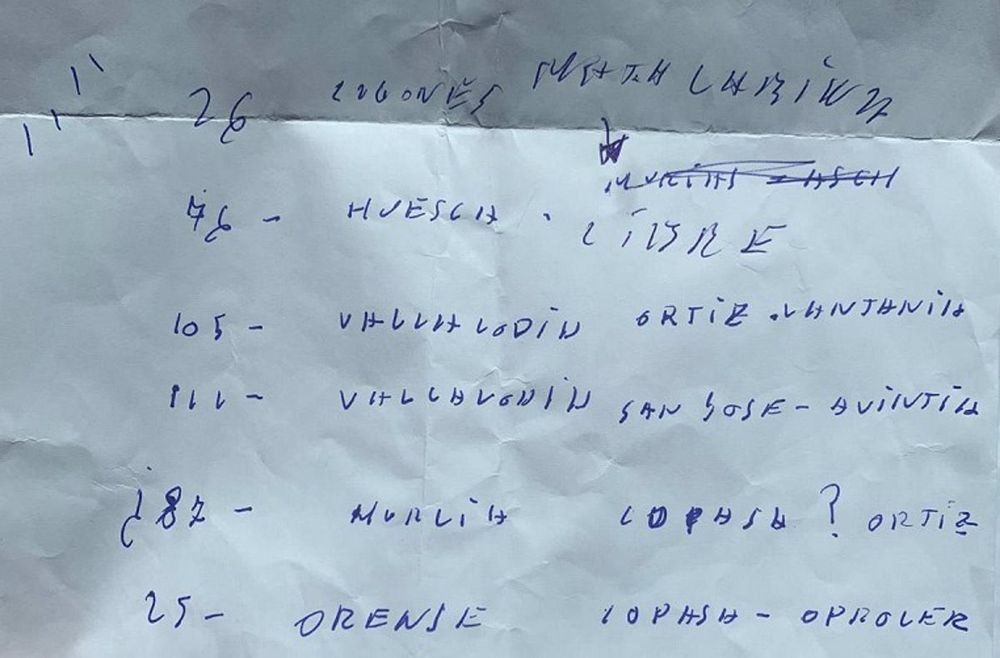 26 LUGONES MATA LABIKA
76 - HUESCA . LIBRE
105 - VALLALODIA ORTIZ . VANTANIA
111 - VALLALODIA SAN JOSE - AVINTIA
¿ 87 - MURCIA COPASA ? ORTIZ
25 - ORENSE COPASA - OPROLER